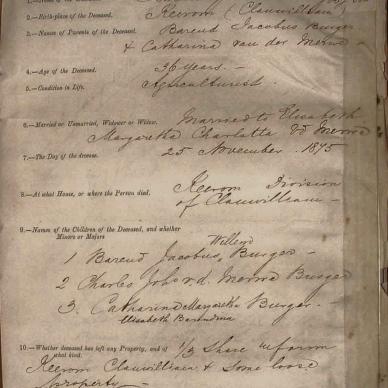 2.—Birth-place of the Deceased. Keerom (Clanwilliam)
3.—Names of Parents of the Deceased. Barend Jacobus Burger
& Catharina van der Merwe
4.—Age of the Deceased. 36 years. —
5.—Condition in Life. Agriculturist
6.—Married or Unmarried, Widower or Widow. Married to Elizabeth
Margaretha Charlotta vd Merwe
7.—The Day of the decease. 25 November 1875
8.—At what House, or where the Person died. Keerom Division
of Clanwilliam —
9.—Names of the Children of the Deceased, and whether
Minors or Majors
Willem
1 Barend Jacobus, Burger —
2 Charles John v.d. Merwe Burger
3. Catharina Margaretha Burger —
Elisabeth Barendina
10.—Whether deceased has left any Property, and of 1/3 Share in farm
what kind.
Keerom Clanwilliam & Some loose
property —